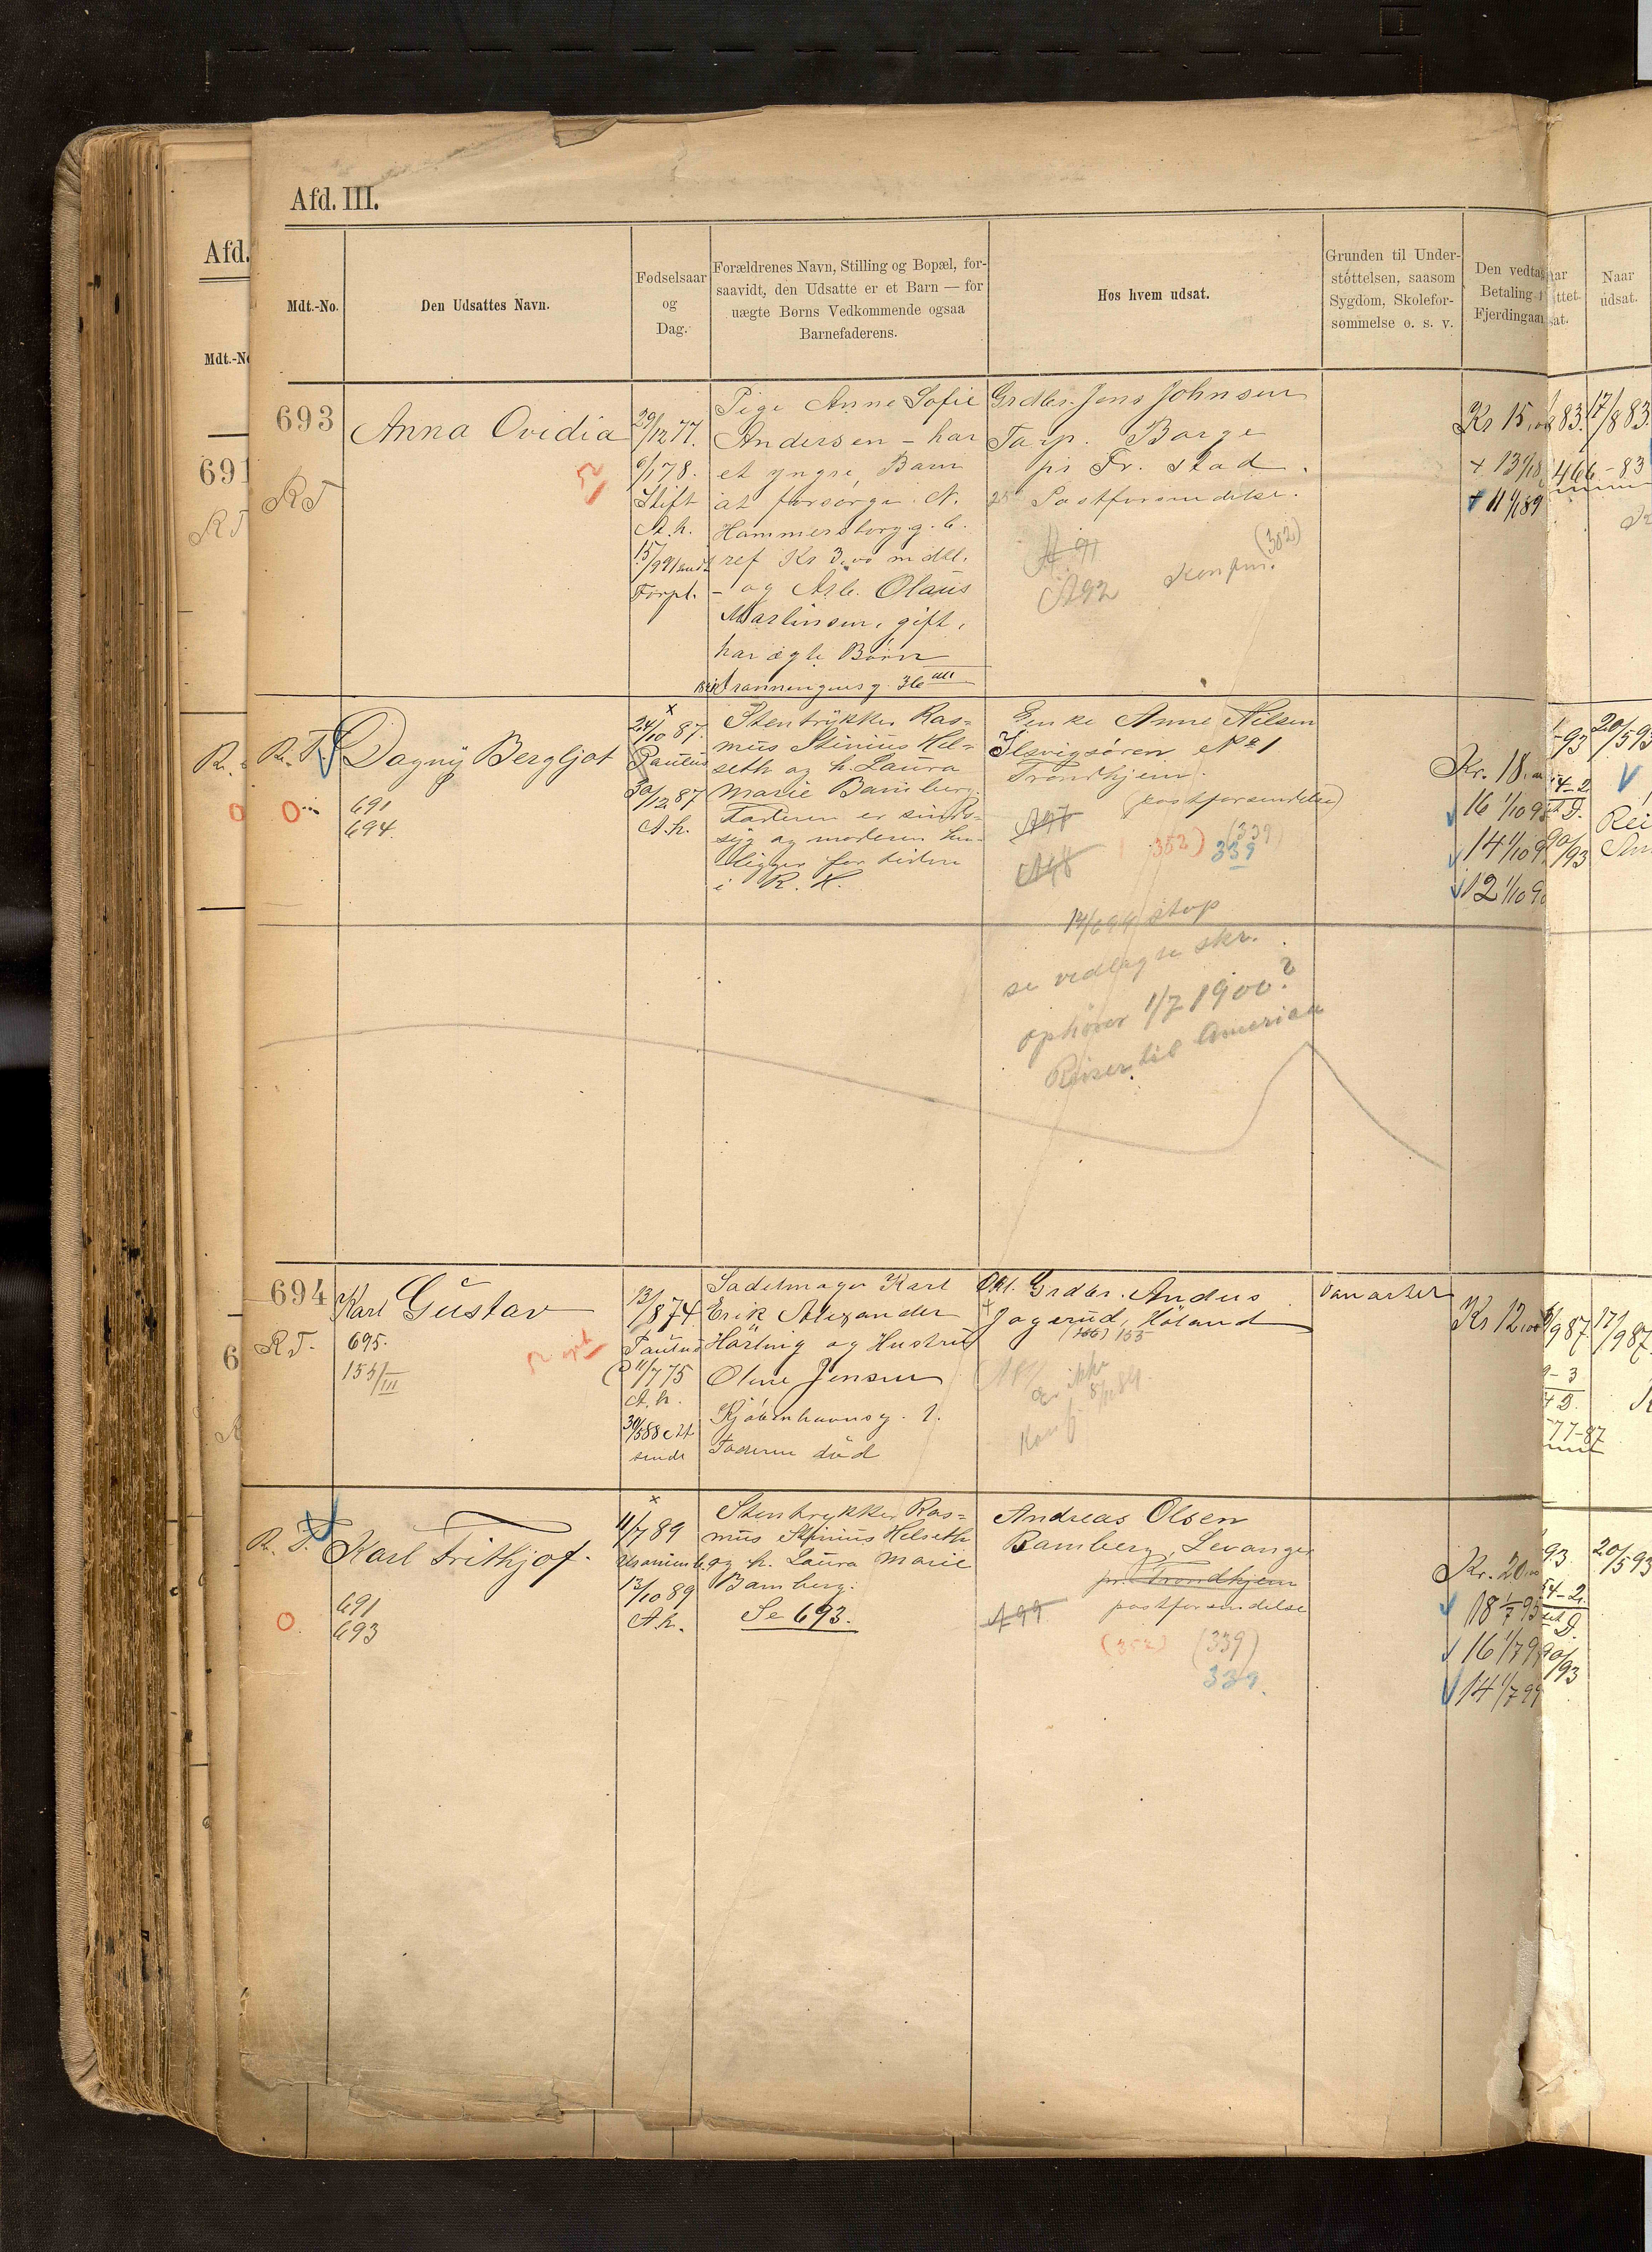 Afd. III.
Afd.
Mdt.-No.
Den Udsattes Navn.
Fødselsaar
og
Dag.
Forældrenes Navn, Stilling og Bopæl, for-
saavidt, den Udsatte er et Barn — for
uægte Børns Vedkommende ogsaa
Barnefaderens.
Hos hvem udsat.
Grunden til Under-
støttelsen, saasom
Sygdom, Skolefor-
sømmelse o. s. v.
Den vedta
Betaling
Fjerdingaar
Naar
udsat.
693
RT
Anna Ovidia
29/12 77.
6/1 78.
Stift
A. h.
15/9 91 sendt
Forpl.
Pige Anne Sofie
Andersen - har
et yngre Barn
at forsørge. N.
Hammersborg g. 6.
ref Kr 3,00 mdl.
- og Arb. Olaus
Martinsen, gift,
har ægte Børn
Grdbr. Jens Johnsen
Torp. Borge
pr Fr. stad.
25 Postforsendelse.
A 91
A92 Konfirm.
(302)
Kr 15,00
+ 13 1/1 8
+ 11 1/1 89
83. 17/8 83.
466-83
R. T.
Dagny Bergljot
691
694.
24/10 87.
Paulus
30/12 87
A. h.
Stentrykker Ras=
mus Stinius Hel=
seth og h. Laura
Marie Bamberg.
Faderen er sinds=
syg og moderen hen=
ligger for tiden
i R. H.
Enke Anne Nilsen
Ilsvigsøren No 1
Trondhjem.
(postforsendelse)
A97
A98
(352) (339)
339
14/6 99 stop
se vedlagte skr.
ophører 1/7 1900?
Reiser til Amerika
Kr. 18,00
16 1/10 95
14 1/10 9
12 1/10 9
93 20/5 93
694
RT.
Karl Gustav
695.
155/III
13/8 74
Paulus
11/7 75
A. h.
30/5 88 Att
sendt
Sadelmager Karl
Erik Alexander
Härling og Hustru
Oline Jensen
Kjøbenhavnsg. 1.
Faderen død
Grdbr. Anders
Jogerud, Høland
(155) 155
er ikke
Konf.
Vanartet
Kr 12,00
9 87. 17/9 87.
77-87
R. T.
Karl Frithjof.
691
693
11/7 89
Uranienb.
13/10 89
A. h.
Stentrykker Ras=
mus Stinius Helseth
og h. Laura Marie
Bamberg.
Se 693.
Andreas Olsen
Bamberg, Levanger
pr. Trondhjem
postforsendelse
A 99
(352) (339)
339.
Kr. 20,00
18 1/7 95
16 1/7 9
14 1/7 99
93 20/5 93